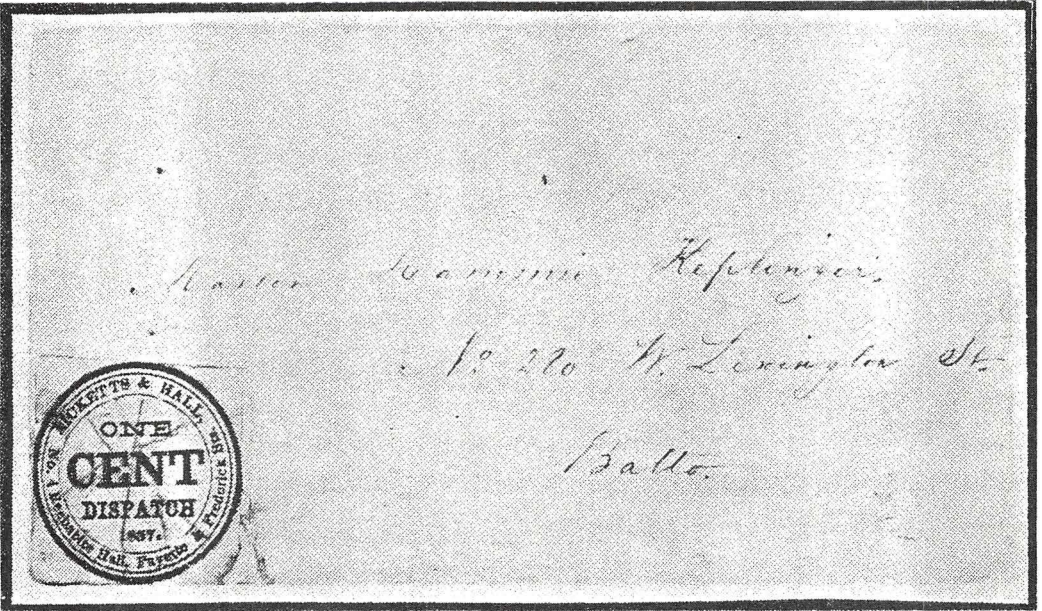 Master Keplinger
No 220 W. Lexington St
Balto.
RICKETTS & HALL,
ONE
CENT
DISPATCH
1857.
No. 1 Rechabite Hall, Fayette & Frederick Sts.